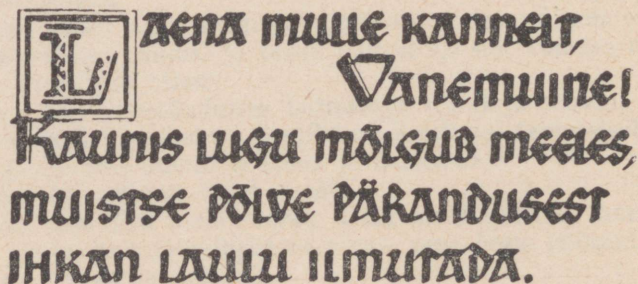 Laena mulle kannelt,
Vanemuine!
Kaunis lugu mõlgub meeles,
muistse põlve pärandusest
ihkan laulu ilmutada.